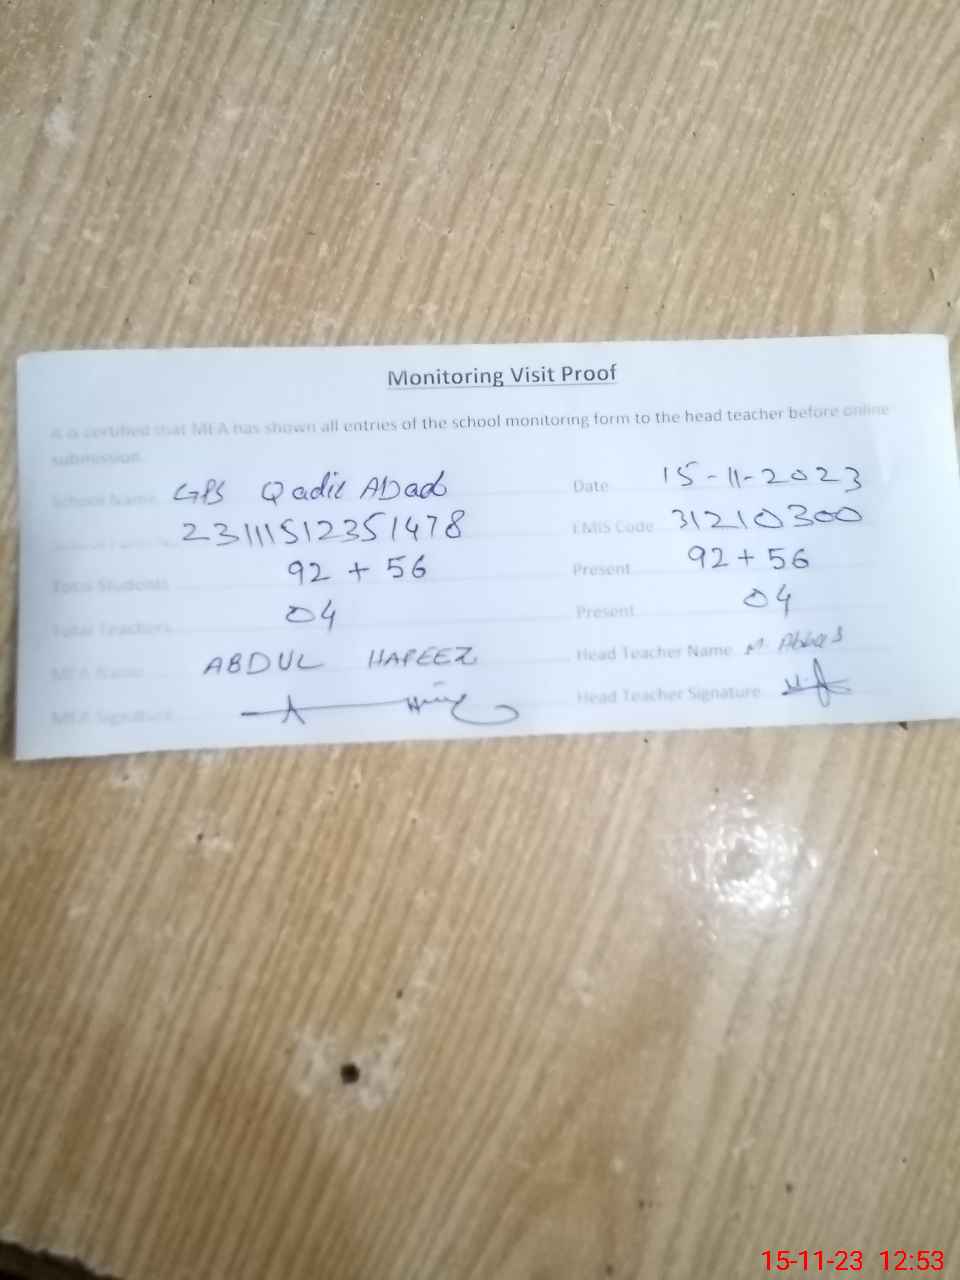 Monitoring Visit Proof
It is certified that MEA has shown all entries of the school monitoring form to the head teacher before online
submission.
School Name GPS Qadir Abad Date 15-11-2023
23111512351478 EMIS Code 31210300
Total Students 92 + 56 Present 92 + 56
Total Teachers 04 Present 04
MEA Name ABDUL HAFEEZ Head Teacher Name M. Abbas
MEA Signature Head Teacher Signature
15-11-23 12:53